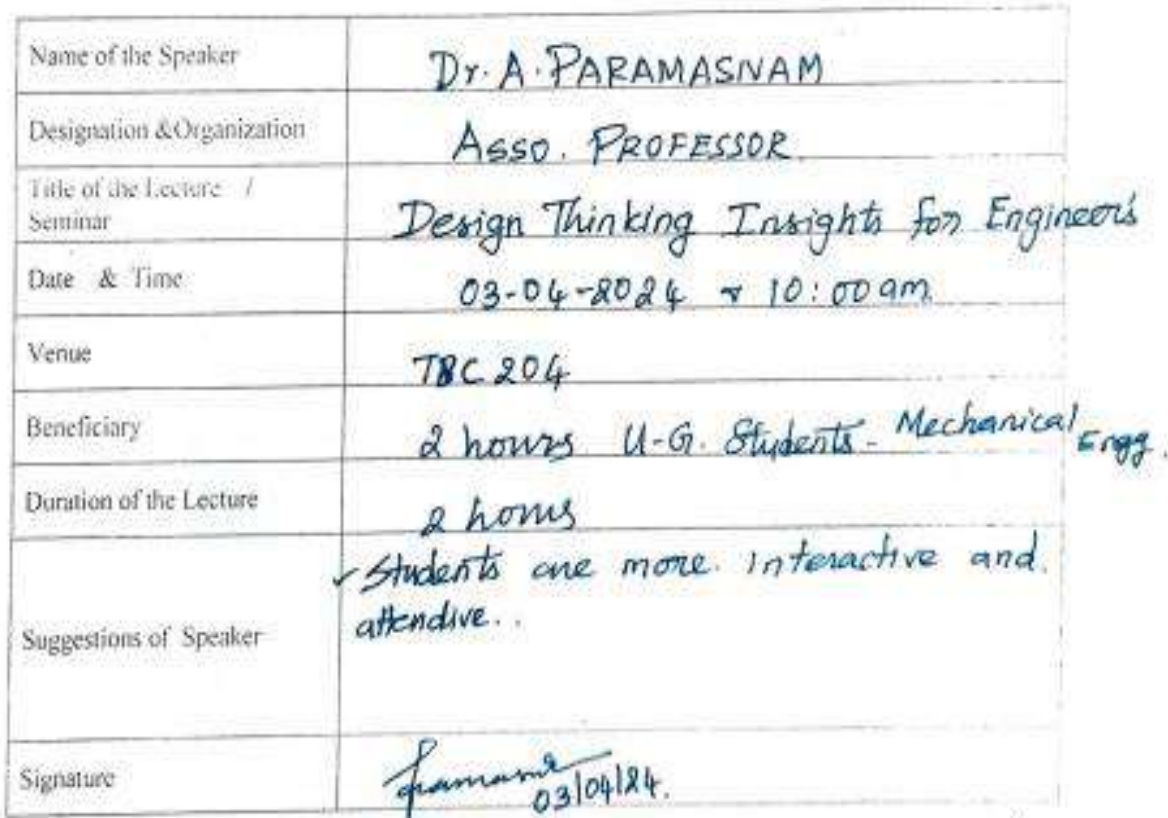 Name of the Speaker Dr. A. PARAMASIVAM
Designation &Organization Asso. PROFESSOR
Title of the Lecture / Seminar Design Thinking Insights for Engineers
Date & Time 03-04-2024 & 10:00am
Venue TBC 204
Beneficiary 2 hours U-G. Students - Mechanical Engg.
Duration of the Lecture 2 hours
Suggestions of Speaker ✓ Students are more interactive and
attendive..
Signature
03/04/24.